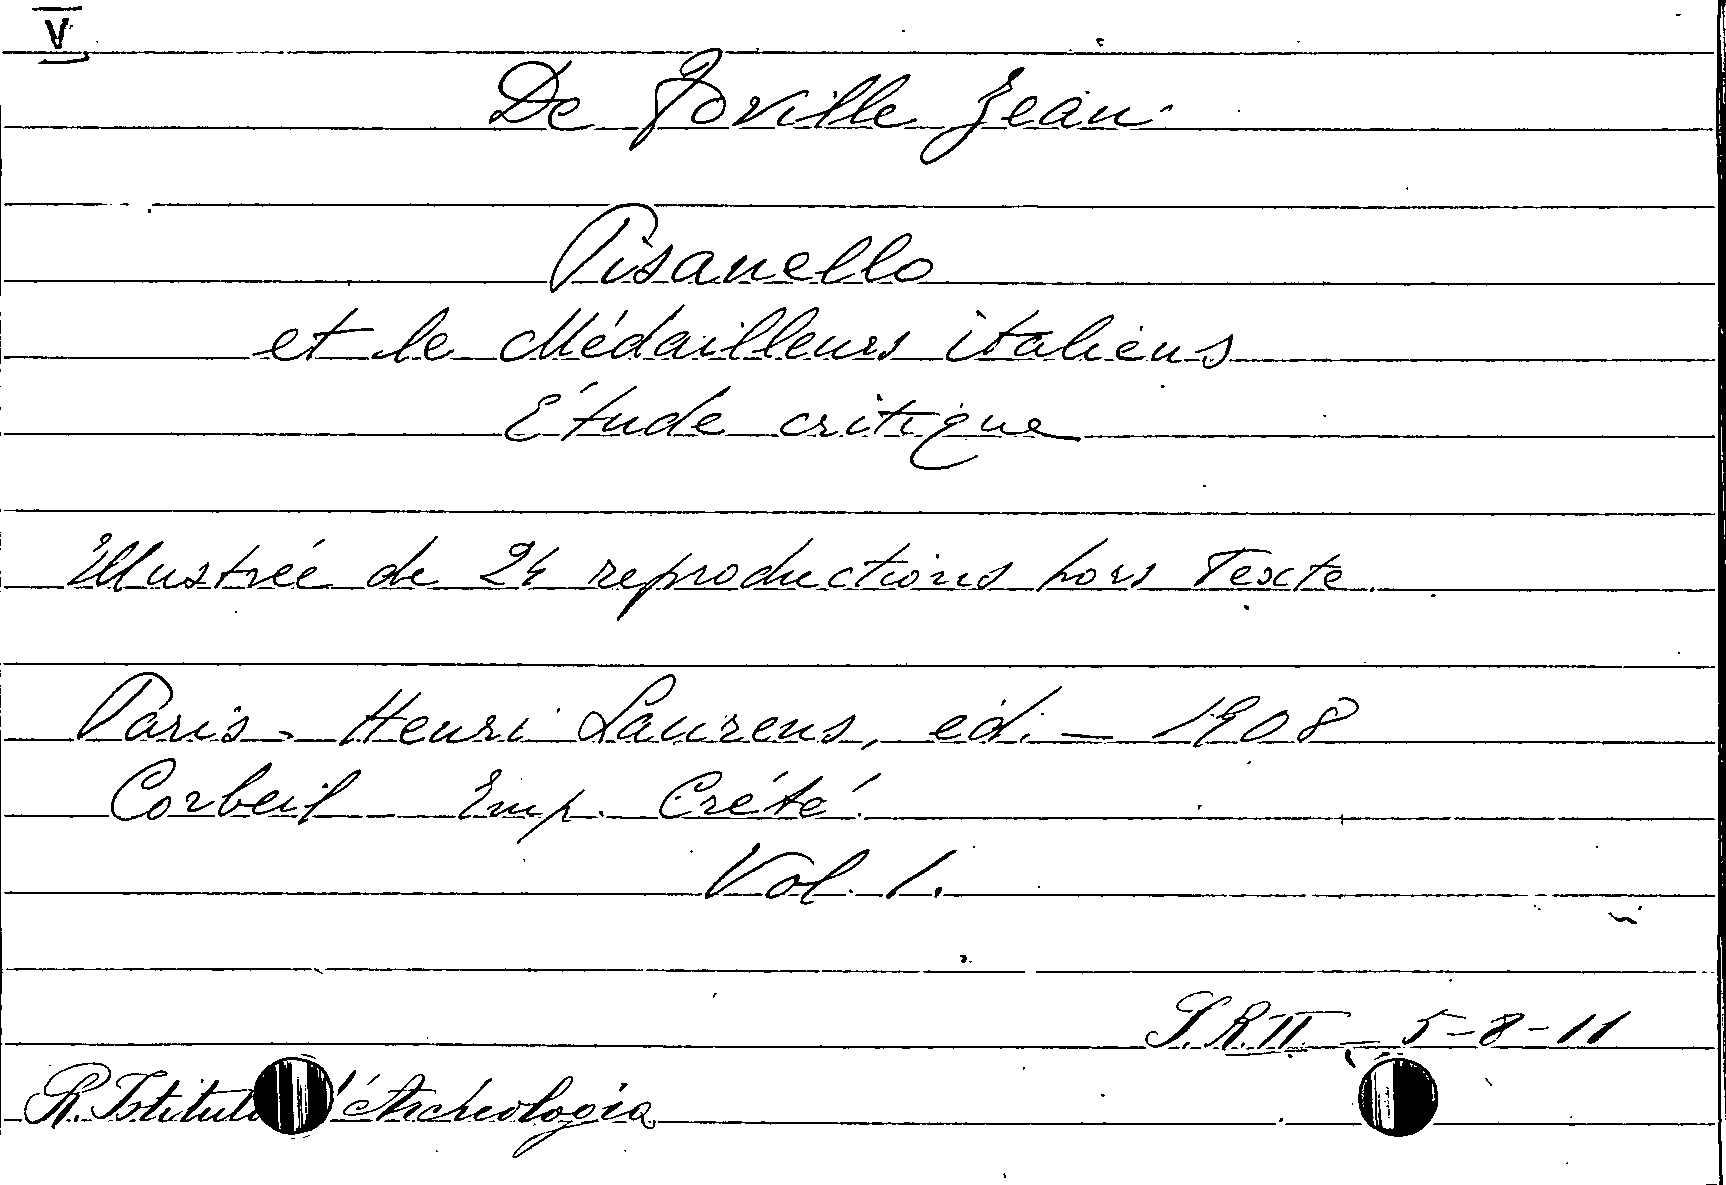 V
De Foville Jean
Pisanello
et le Médailleurs italiens
Étude critique
illustrée de 24 reproductions hors Texte.
Paris - Henri Laurens, éd. - 1908
Corbeil - Imp. Crété.
Vol. 1.
S.R.II - 5-8-11
R. Istituto d'Archeologia